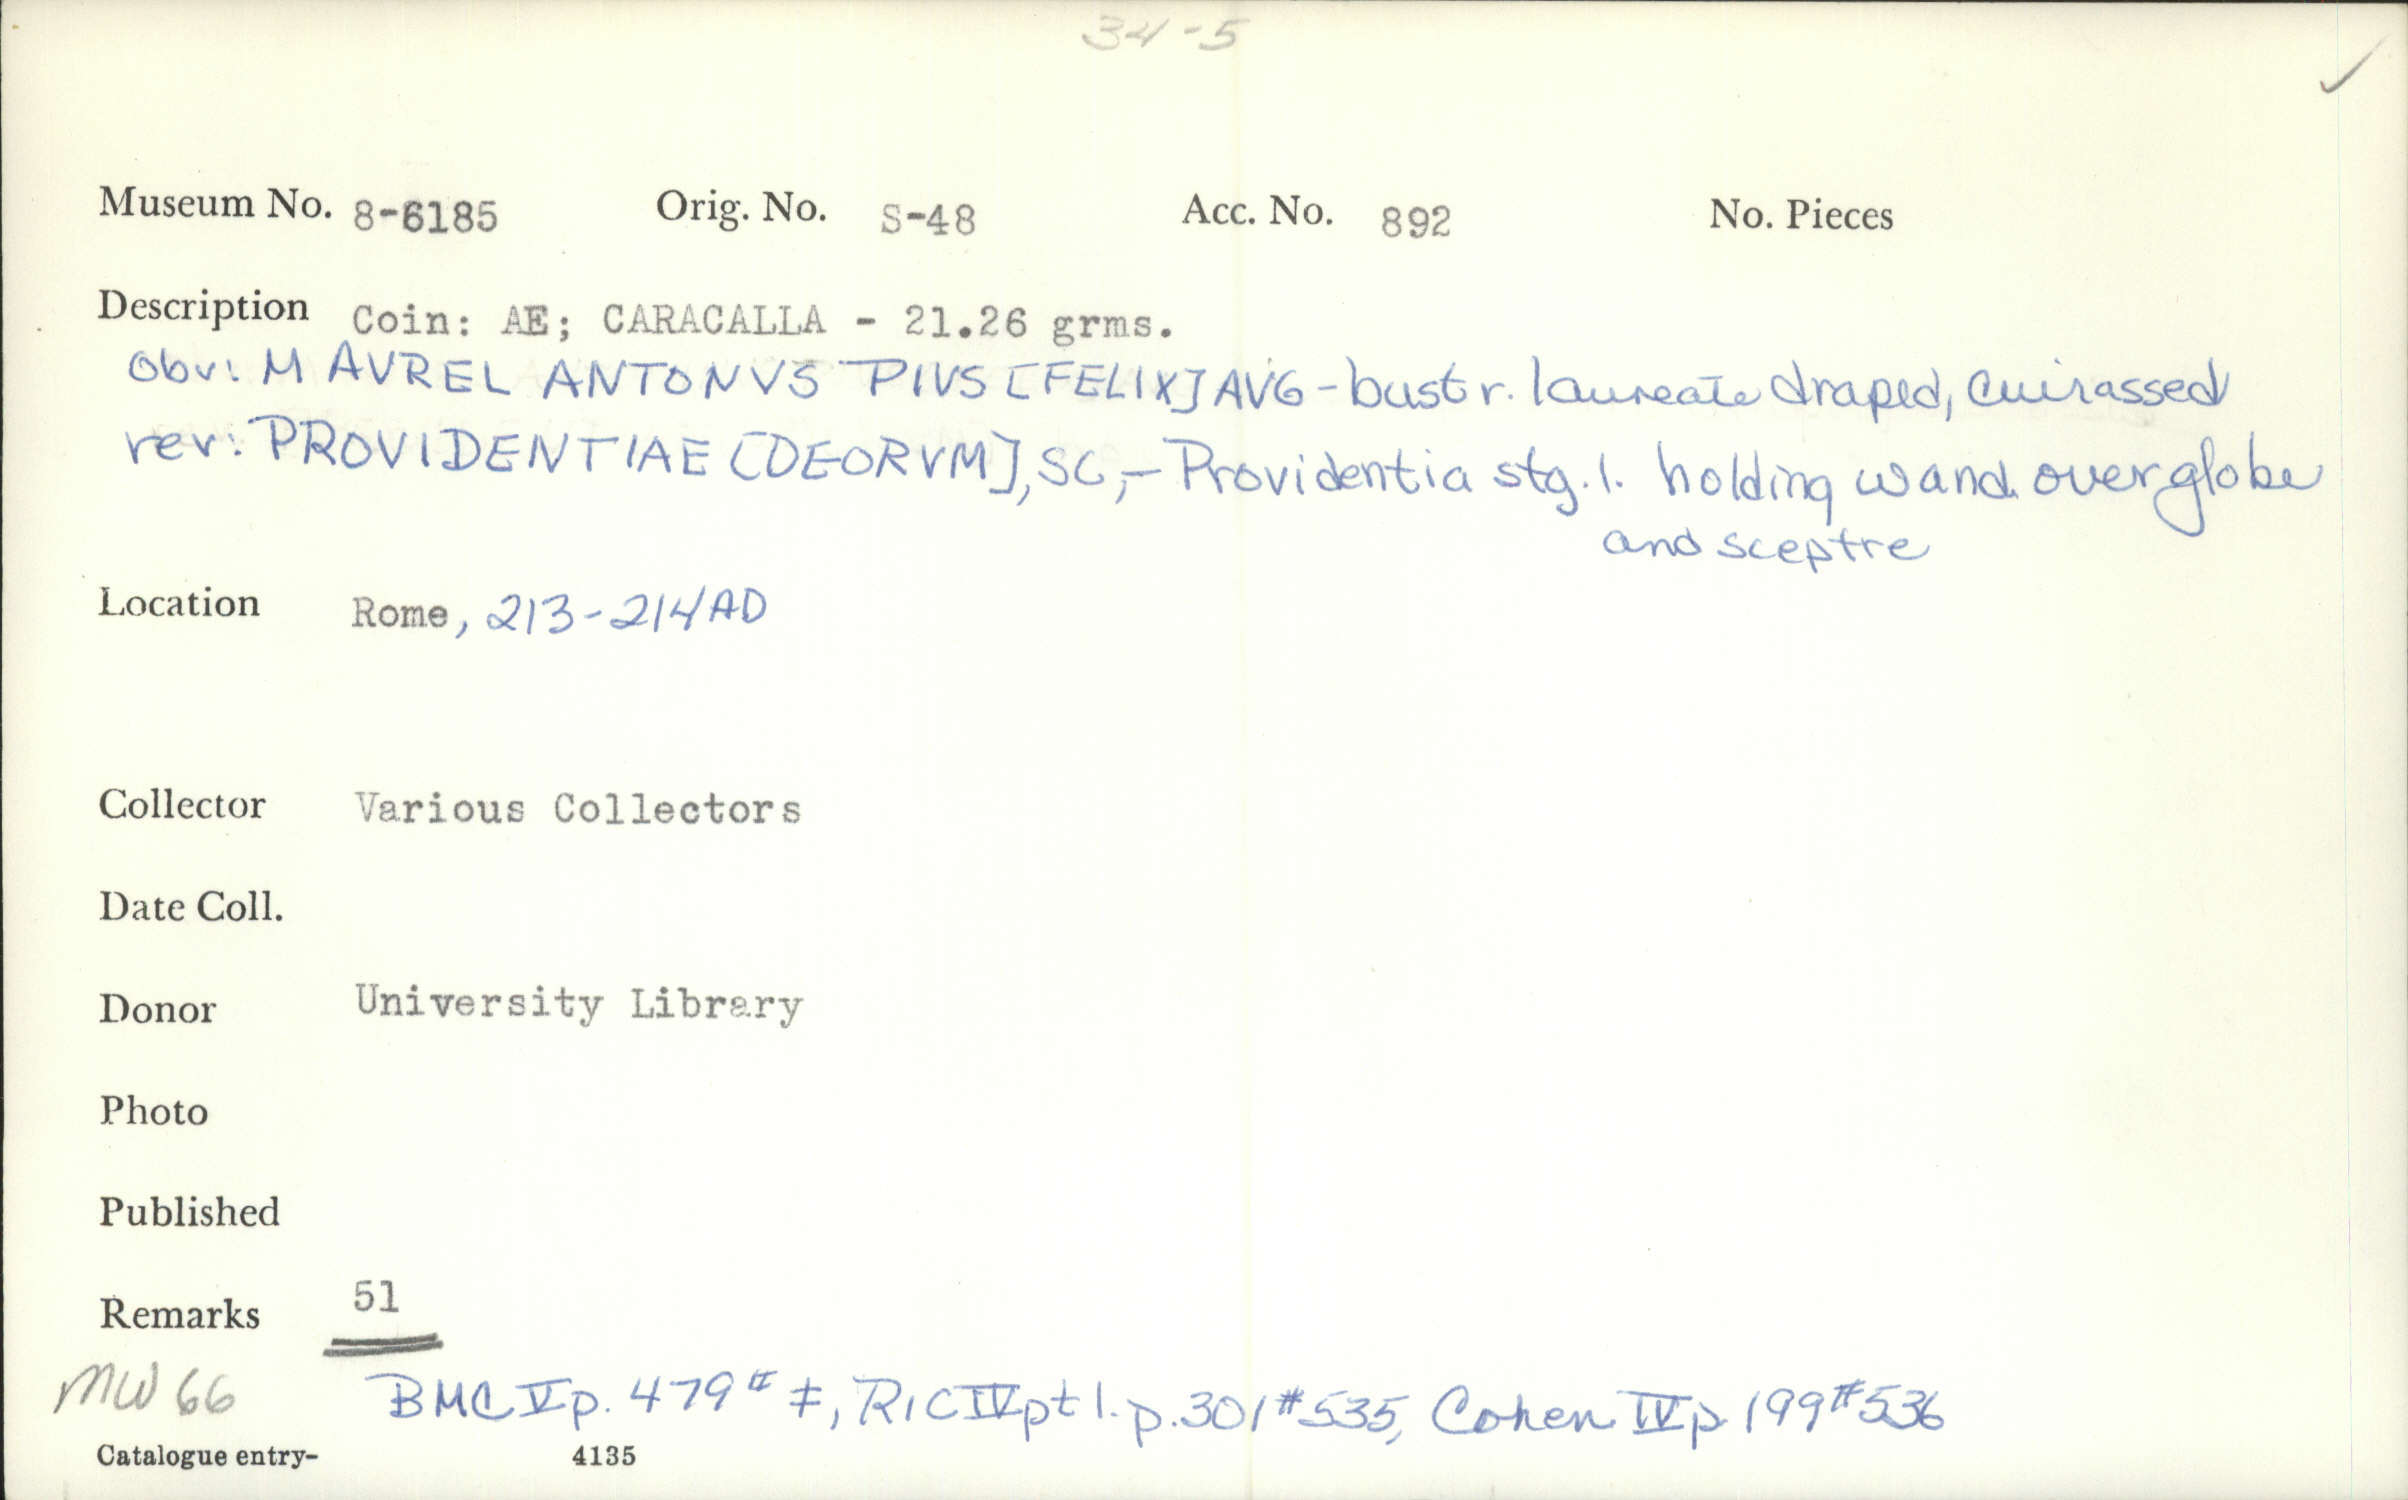 34-5
Museum No. 8-6185 Orig. No. S-48 Acc. No. 892 No. Pieces
Description Coin: AE; CARACALLA - 21.26 grms.
obv: M AVREL ANTONVS PIVS [FELIX] AVG - bust r. laureate draped, cuirassed
rev: PROVIDENTIAE [DEORVM], SC, - Providentia stg. l. holding wand over globe
and sceptre
Location Rome, 213-214 AD
Collector Various Collectors
Date Coll.
Donor University Library
Photo
Published
Remarks 51
MW 66 BMC V p. 479 # ‡, RIC IV pt 1. p. 301 #535, Cohen IV p 199 #536
Catalogue entry- 4135